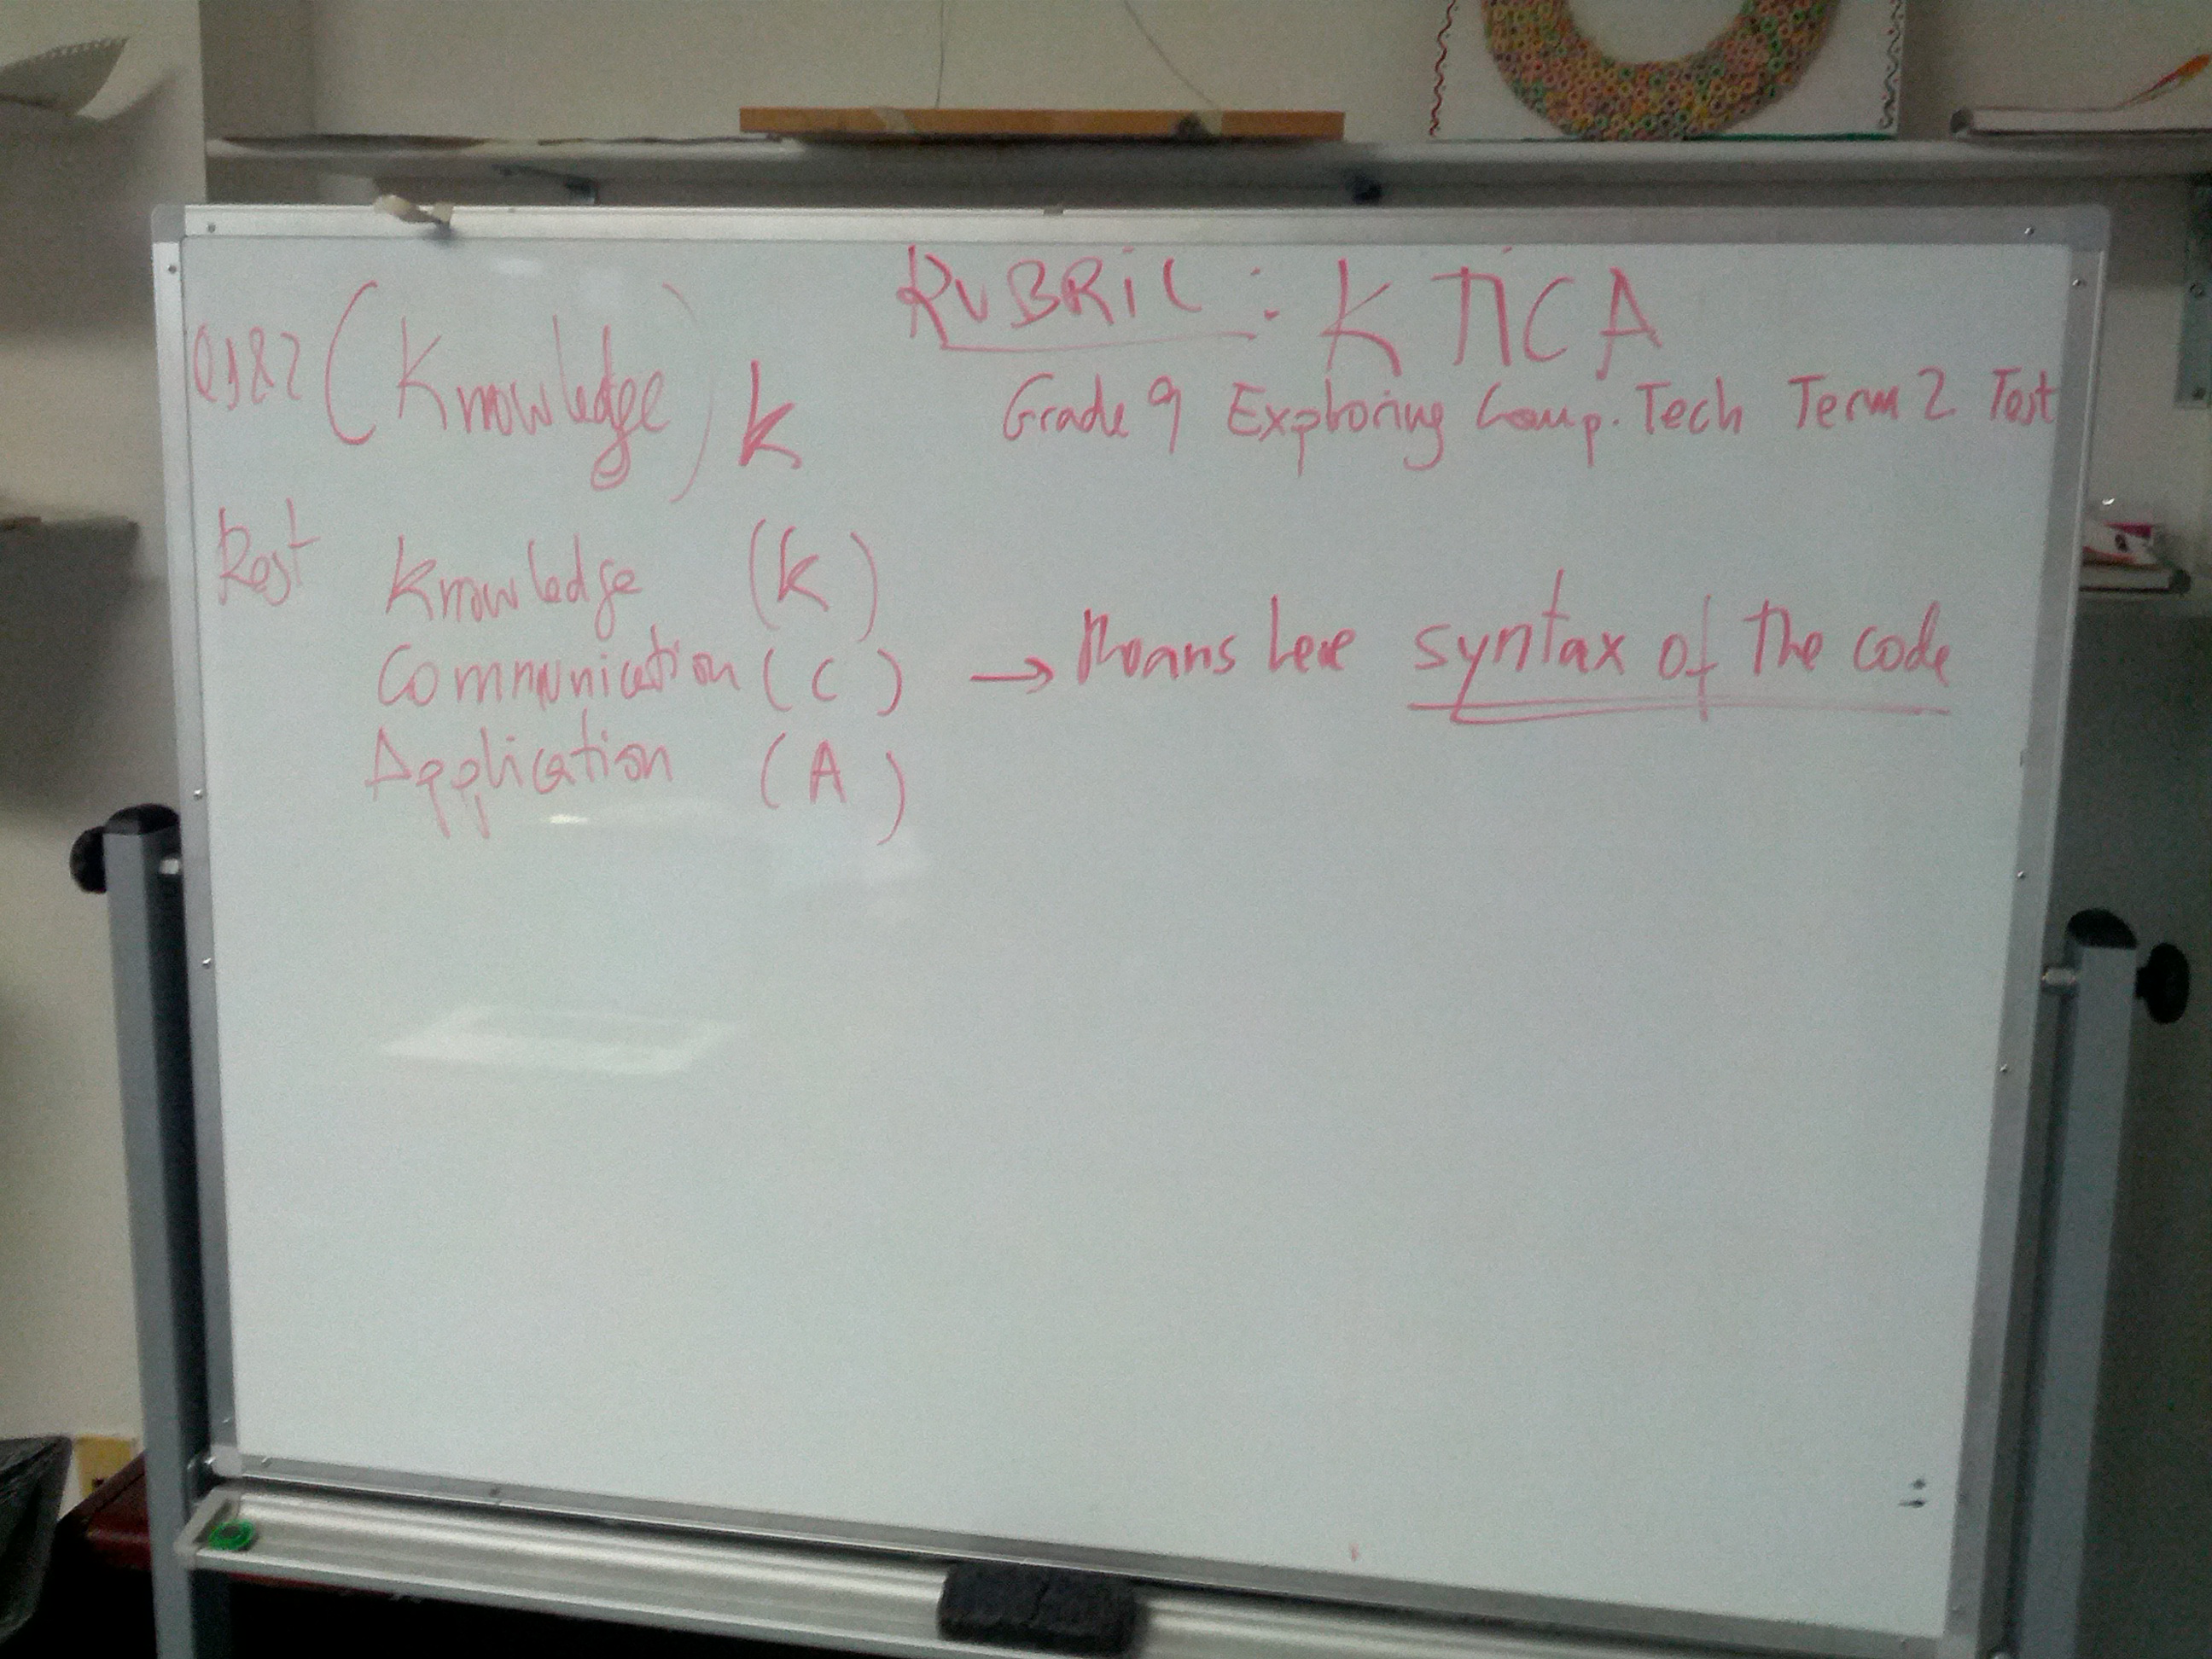 RUBRIC : KTICA
Grade 9 Exploring Comp. Tech Term 2 Test
Q1&2 (Knowledge) K
Rest Knowledge (K)
Communication (C) → Means here syntax of the code
Application (A)